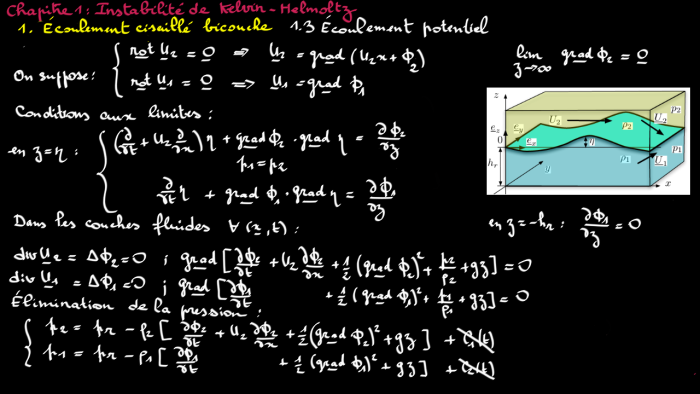 Chapitre 1: Instabilité de Kelvin-Helmoltz
1. Écoulement cisaillé bicouche 1.3 Écoulement potentiel
On suppose: { rot U₂ = 0 ⇒ U₂ = grad (U₂x + Φ₂)
rot U₁ = 0 ⇒ U₁ = grad Φ₁
lim z→∞ grad Φ₂ = 0
Conditions aux limites:
en z=η : { (∂/∂t + U₂ ∂/∂x) η + grad Φ₂ · grad η = ∂Φ₂/∂z
p₁ = p₂
∂/∂t η + grad Φ₁ · grad η = ∂Φ₁/∂z
z
U₂ p₂
ρ₂ U₂
e_z e_y
0 e_x η p₁
h_r y ρ₁ U₁
x
en z=-h_r : ∂Φ₁/∂z = 0
Dans les couches fluides ∀(x,t):
div U₂ = ΔΦ₂ = 0 ; grad [∂Φ₂/∂t + U₂ ∂Φ₂/∂x + 1/2 (grad Φ₂)² + p₂/ρ₂ + gz] = 0
div U₁ = ΔΦ₁ = 0 ; grad [∂Φ₁/∂t + 1/2 (grad Φ₁)² + p₁/ρ₁ + gz] = 0
Élimination de la pression:
{ p₂ = p_r - ρ₂ [∂Φ₂/∂t + U₂ ∂Φ₂/∂x + 1/2 (grad Φ₂)² + gz] + C₁(t)
p₁ = p_r - ρ₁ [∂Φ₁/∂t + 1/2 (grad Φ₁)² + gz] + C₂(t)